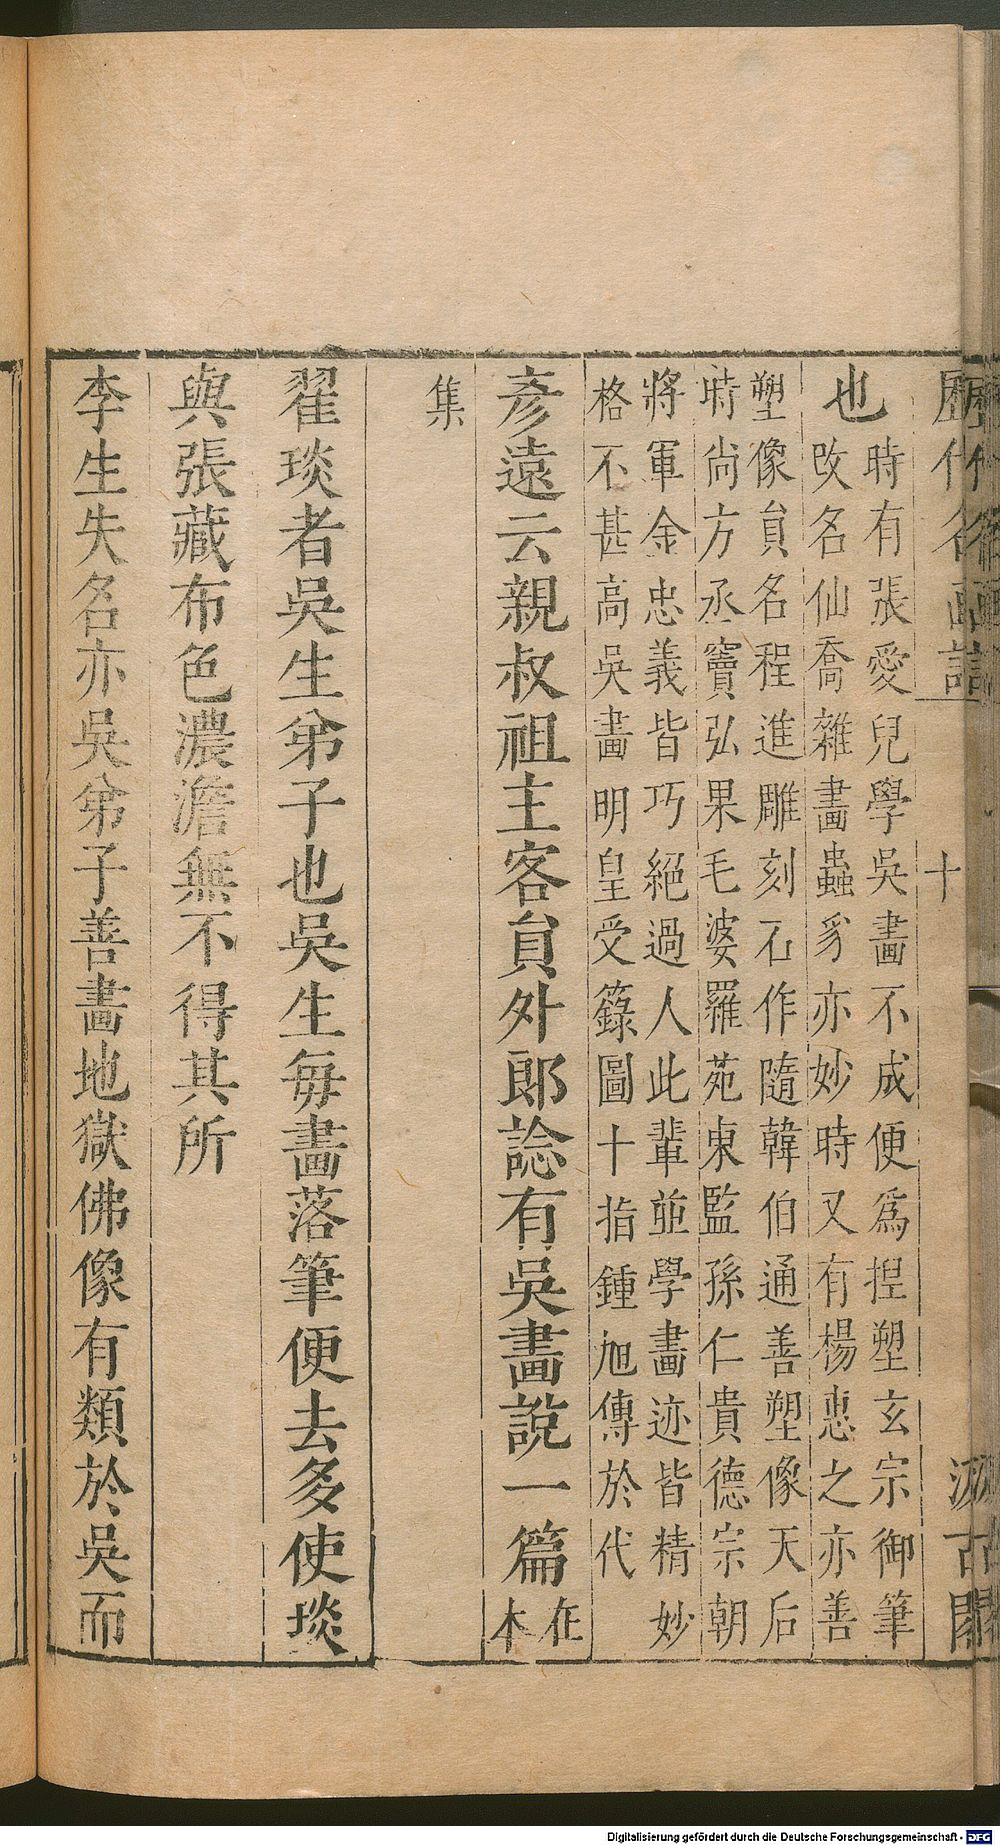 歷代名畫記
十
汲古閣
也時有張愛兒學吳畫不成便爲揑塑玄宗御筆
改名仙喬雜畫蟲豸亦妙時又有楊惠之亦善
塑像貟名程進雕刻石作隨韓伯通善塑像天后
時尚方丞竇弘果毛婆羅苑東監孫仁貴德宗朝
將軍金忠義皆巧絕過人此輩並學畫迹皆精妙
格不甚高吳畫明皇受籙圖十指鍾旭傳於代
彥遠云親叔祖主客貟外郎諗有吳畫說一篇在本
集
翟琰者吳生弟子也吳生每畫落筆便去多使琰
與張藏布色濃澹無不得其所
李生失名亦吳弟子善畫地獄佛像有類於吳而
Digitalisierung gefördert durch die Deutsche Forschungsgemeinschaft - DFG